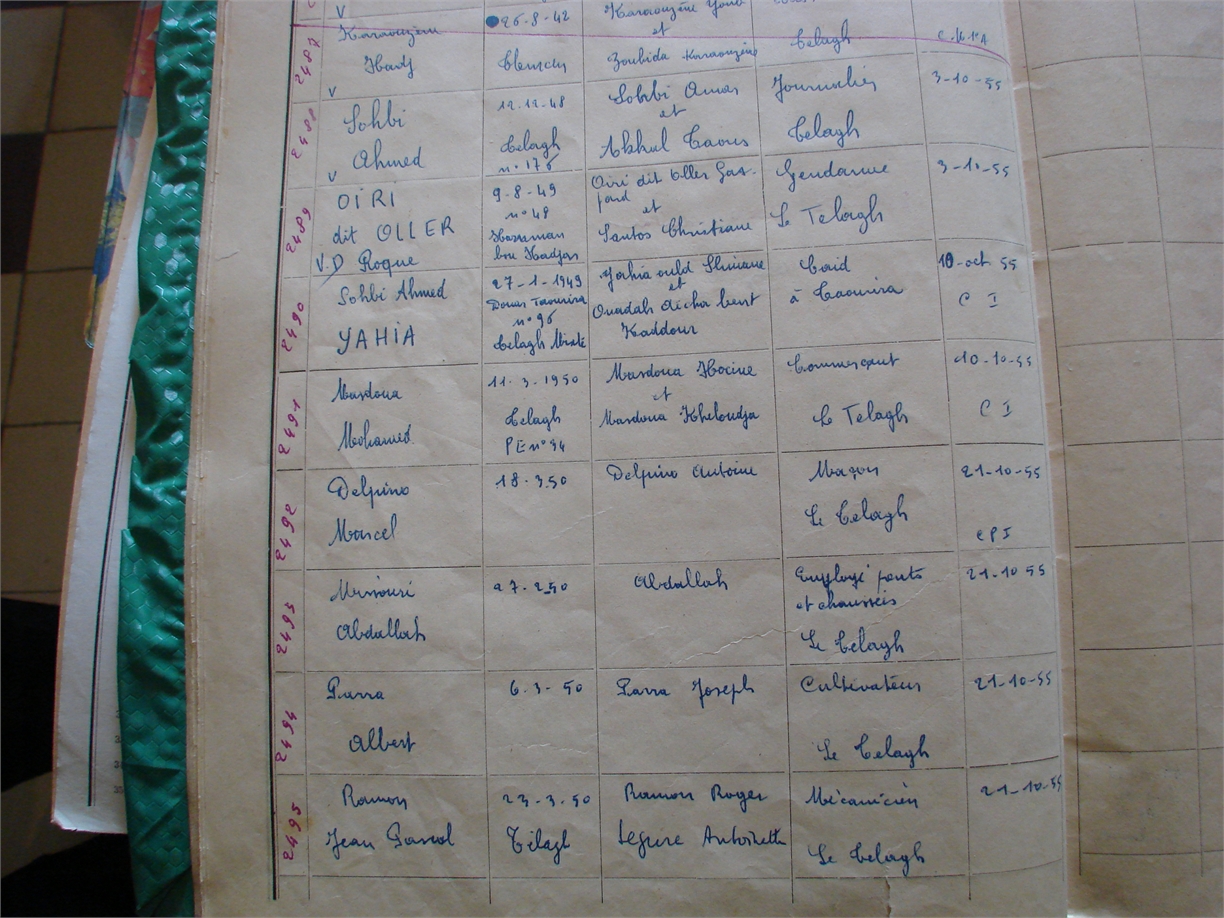 2487
V
Karaouzène
Hadj
26-8-42
Tlemcen
Karaouzène
et
Zoubida Karaouzène
Telagh
2488
V
Sohbi
Ahmed
12.12-48
Telagh
n° 176
Sohbi Omar
et
Akkhul Taous
Journalier
Telagh
3-10-55
2489
V
OIRI
dit OLLER
V.D Roque
9-8-49
n° 48
Hammam
bou Hadjar
Oiri dit Oller Gas-
pard
et
Santos Christiane
Gendarme
Le Telagh
3-10-55
2490
Sohbi Ahmed
YAHIA
27-1-1949
Douar Taouira
n° 96
Telagh Mixte
Yahia ould Slimane
et
Ouadah Aicha bent
Kaddour
Caid
à Taouira
10-oct 55
C I
2491
Mardoua
Mohamed
11.3-1950
Telagh
PE n° 94
Mardoua Hocine
et
Mardoua Kheloudja
Commerçant
Le Telagh
10-10-55
C I
2492
Delpino
Marcel
18-3.50
Delpino Antoine
Maçon
Le Telagh
21-10-55
CP I
2493
Missouri
Abdallah
27-2.50
Abdallah
Employé ponts
et chaussées
Le Telagh
21-10 55
2494
Parra
Albert
6-3-50
Parra Joseph
Cultivateur
Le Telagh
21-10-55
2495
Ramon
Jean Pascal
23-3-50
Télagh
Ramon Roger
Segure Antoinette
Mécanicien
Le Telagh
21-10-55